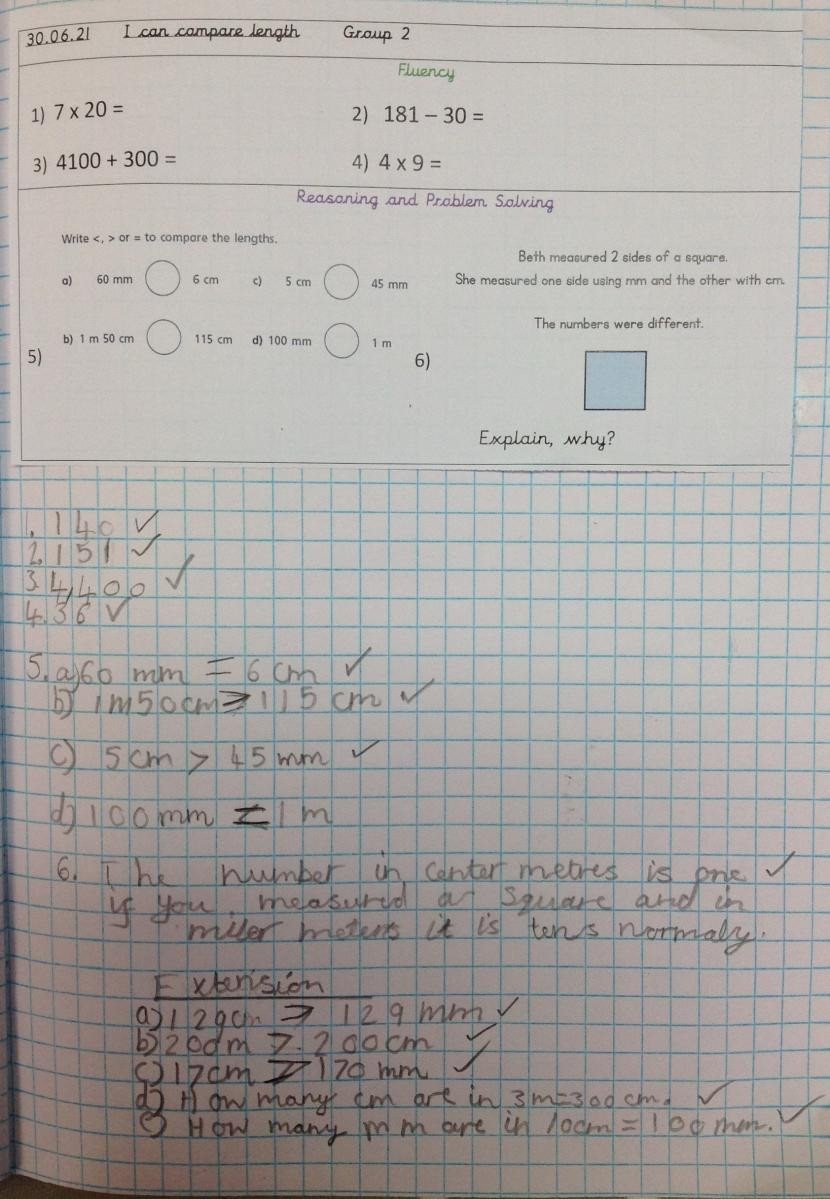 30.06.21 I can compare length Group 2
Fluency
1) 7 x 20 =
2) 181 – 30 =
3) 4100 + 300 =
4) 4 x 9 =
Reasoning and Problem Solving
5)
Write <, > or = to compare the lengths.
a) 60 mm 6 cm c) 5 cm 45 mm
b) 1 m 50 cm 115 cm d) 100 mm 1 m
6)
Beth measured 2 sides of a square.
She measured one side using mm and the other with cm.
The numbers were different.
Explain, why?
1. 140 ✓
2. 151 ✓
3. 4,400 ✓
4. 36 ✓
5. a) 60 mm = 6 cm ✓
b) 1m50cm > 115 cm ✓
c) 5cm > 45mm ✓
d) 100mm 1m
6. The number in center metres is one ✓
if you measured a square and in
miler meters it is tens normaly.
Extension
a) 129cm > 129mm ✓
b) 200m > 200cm ✓
c) 17cm 170mm ✓
d) How many cm are in 3m=300cm. ✓
e) How many mm are in 10cm = 100mm. ✓